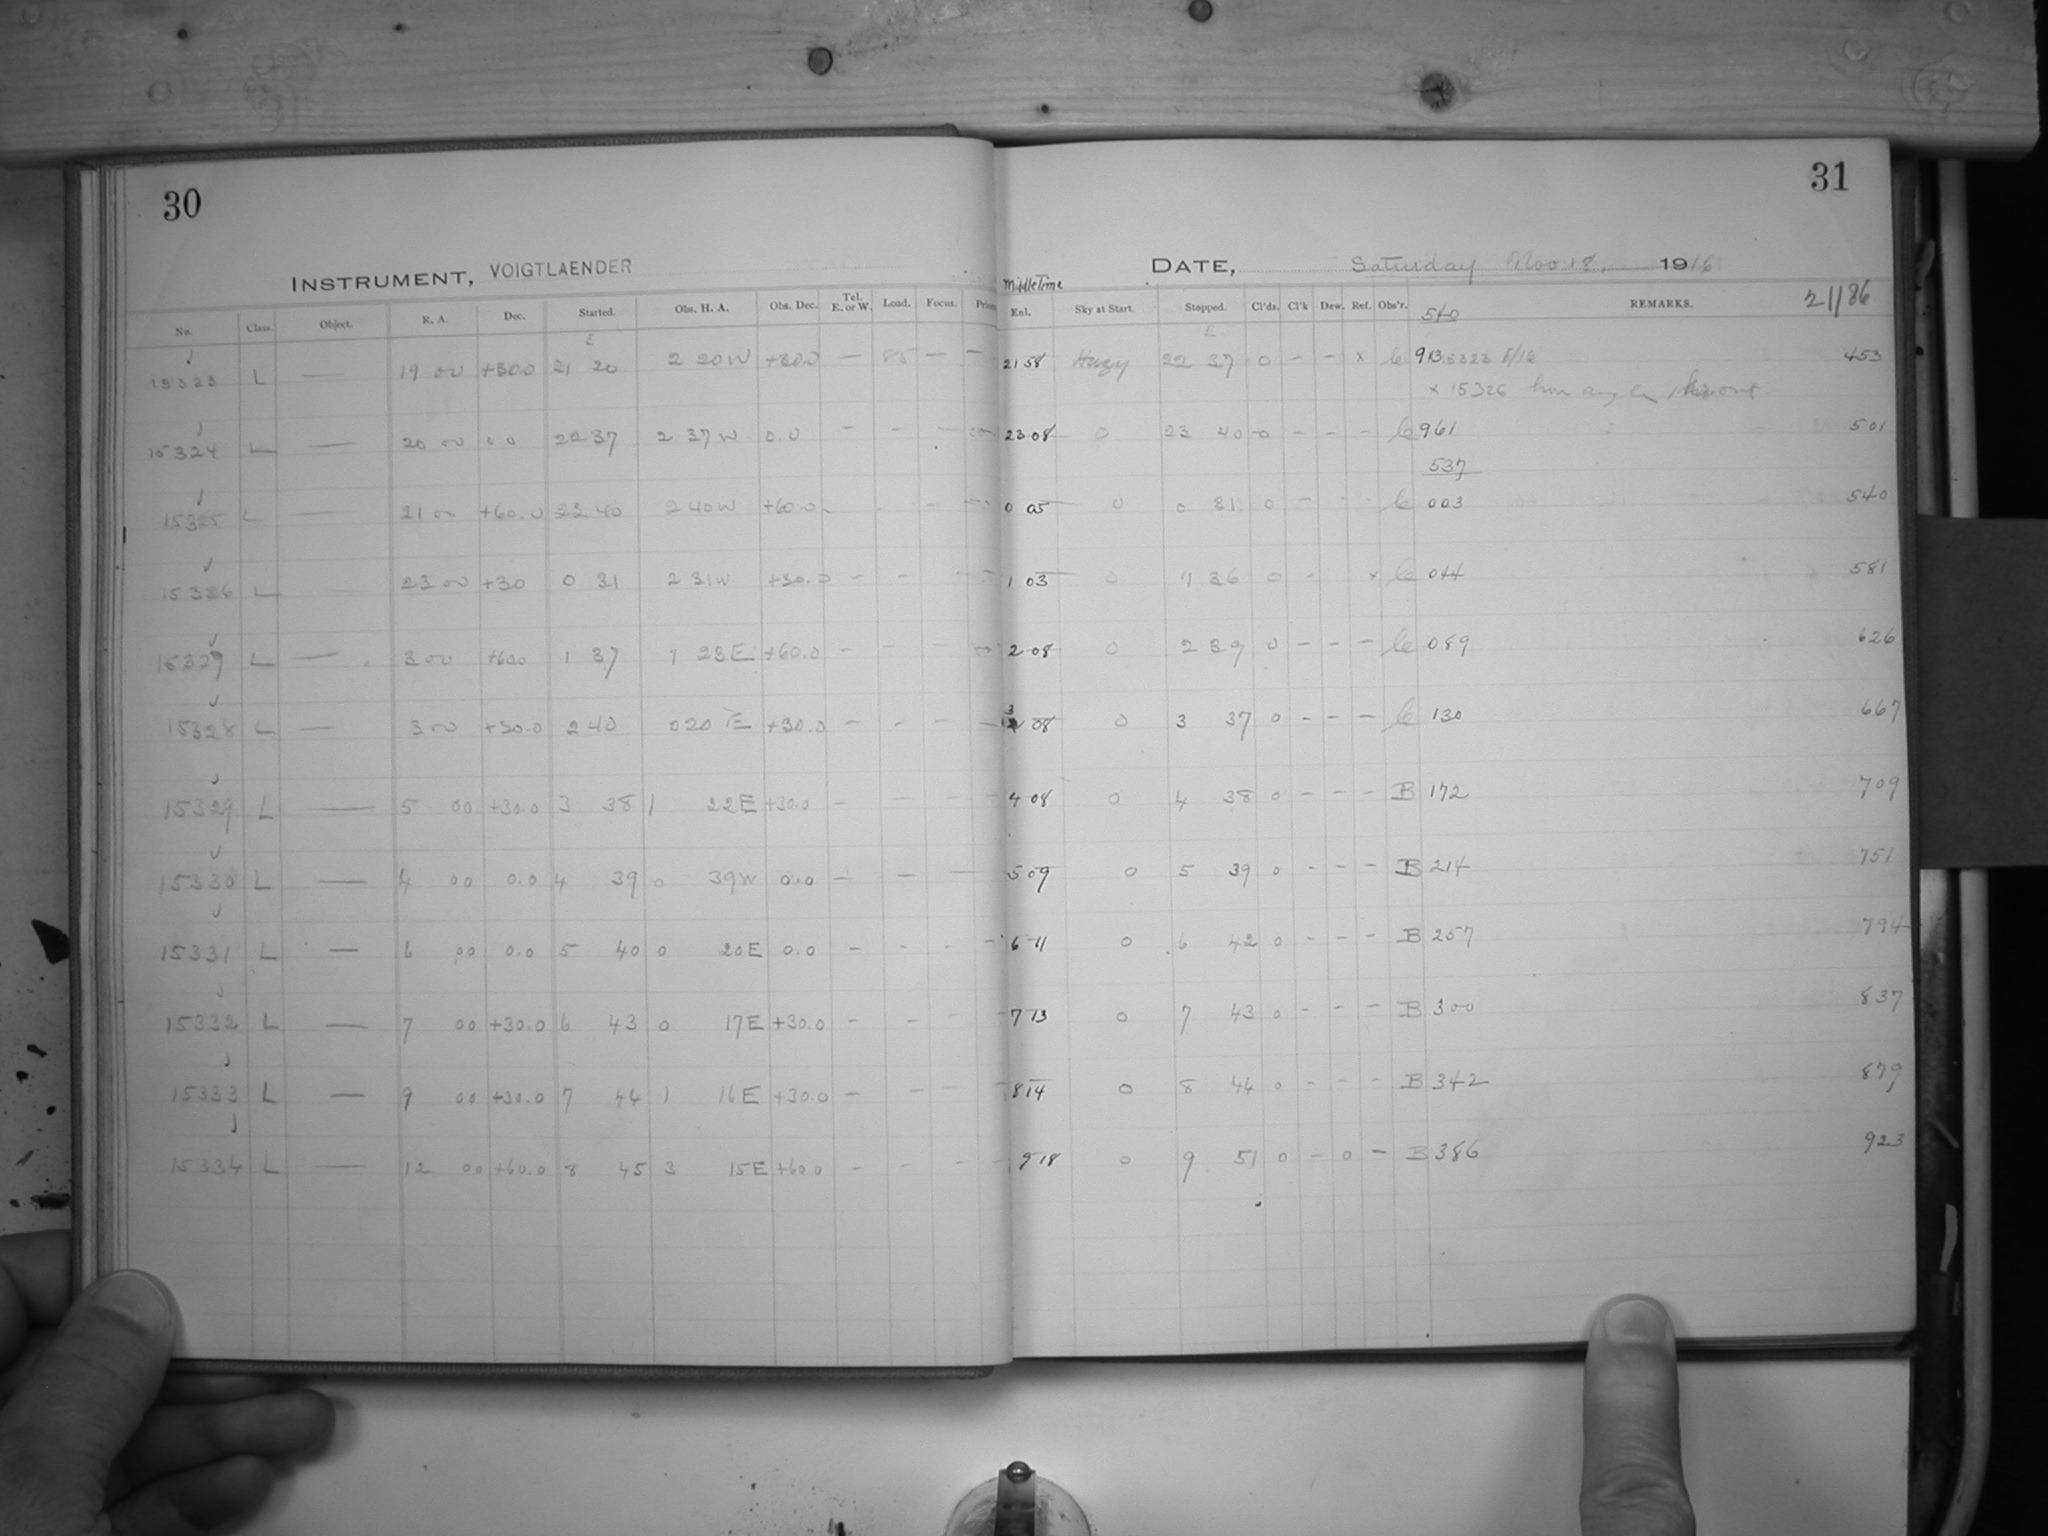 30
31
INSTRUMENT, VOIGTLAENDER
DATE, Saturday Nov 18, 1916
No. Class. Object. R. A. Dec. Started. Obs. H. A. Obs. Dec. Tel. E. or W. Load. Focus. Prism
Middle Time
Enl. Sky at Start. Stopped. Cl'ds. Cl'k Dew. Ref. Obs'r. REMARKS. 21/86
540
E E
15323 L — 19 00 +30.0 21 20 2 20W +30.0 — 85 — — 21 58 Hazy 22 37 0 – – x C 913 15323 453
x 15326
15324 L — 20 00 0.0 22 37 2 37W 0.0 – – – 23 08 0 23 40 0 – – – C 961 501
537
15325 L — 21 00 +60.0 22 40 2 40W +60.0 0 05 0 0 31 0 – C 003 540
15326 L — 23 00 +30 0 31 2 31W +30.0 – – 1 03 0 1 36 0 – x C 044 581
15327 L — 3 00 +60.0 1 37 1 23E +60.0 – – 2 08 0 2 39 0 – – – C 089 626
15328 L — 3 00 +30.0 2 40 0 20E +30.0 – – – – 3 08 0 3 37 0 – – – C 130 667
15329 L — 5 00 +30.0 3 38 1 22E +30.0 – – – 4 08 0 4 38 0 – – – B 172 709
15330 L — 4 00 0.0 4 39 0 39W 0.0 – – – 5 09 0 5 39 0 – – – B 214 751
15331 L — 6 00 0.0 5 40 0 20E 0.0 – – – – 6 11 0 6 42 0 – – – B 257 794
15332 L — 7 00 +30.0 6 43 0 17E +30.0 – – – – 7 13 0 7 43 0 – – – B 300 837
15333 L — 9 00 +30.0 7 44 1 16E +30.0 – – – 8 14 0 8 44 0 – – – B 342 879
15334 L — 12 00 +60.0 8 45 3 15E +60.0 – – – – 9 18 0 9 51 0 – 0 – B 386 923